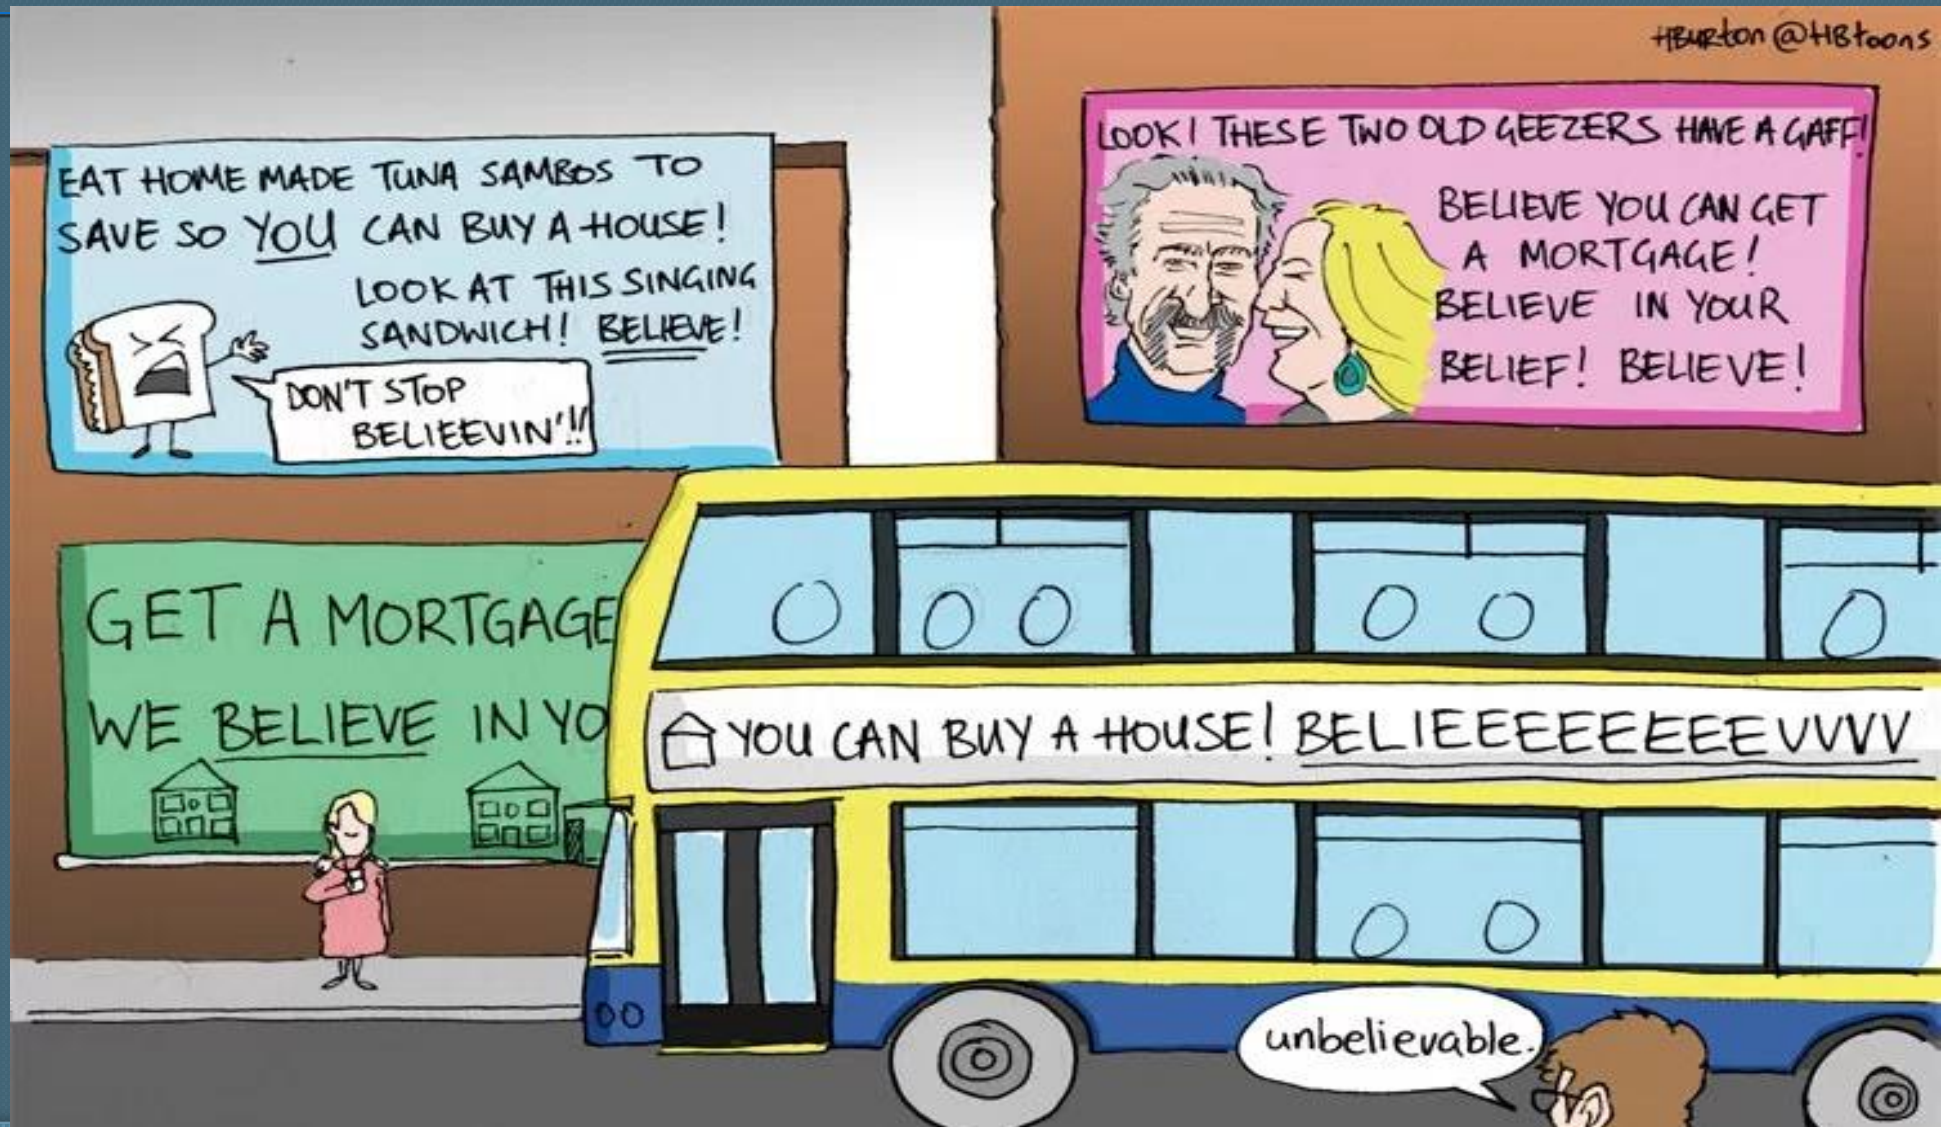 HBurton @HBtoons
EAT HOME MADE TUNA SAMBOS TO
SAVE SO YOU CAN BUY A HOUSE!
LOOK AT THIS SINGING
SANDWICH! BELIEVE!
DON'T STOP
BELIEEVIN'!!
LOOK! THESE TWO OLD GEEZERS HAVE A GAFF!
BELIEVE YOU CAN GET
A MORTGAGE!
BELIEVE IN YOUR
BELIEF! BELIEVE!
GET A MORTGAGE
WE BELIEVE IN YO
YOU CAN BUY A HOUSE! BELIEEEEEEEEEVVVV
unbelievable.